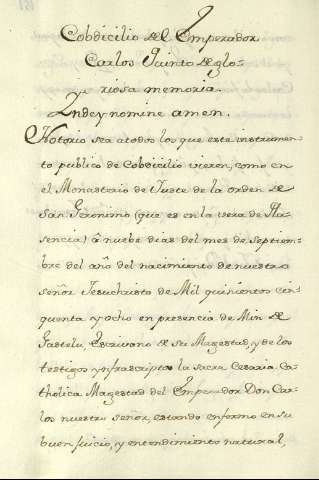 Cobdicilio del Emperador
Carlos Quinto de glo-
riosa memoria.
Yndey nomine amen.
Notorio sea atodos los que este instrumen
to publico de Cobdicilio vieren, como en
el Monasterio de Juste de la orden de
San Geronimo (que es en la vera de Pla
sencia) á nuebe dias del mes de Septiem-
bre del año del nacimiento de nuestro
señor Jesuchristo de Mil quinientos cin
quenta y ocho en presencia de Min de
Gastelu Escrivano de su Magestad, y de los
testigos ynfrascriptos la sacra Cesaria Ca
tholica Magestad del Emperador Don Car
los nuestro señor, estando enfermo en su
buen juicio, y entendimiento natural,